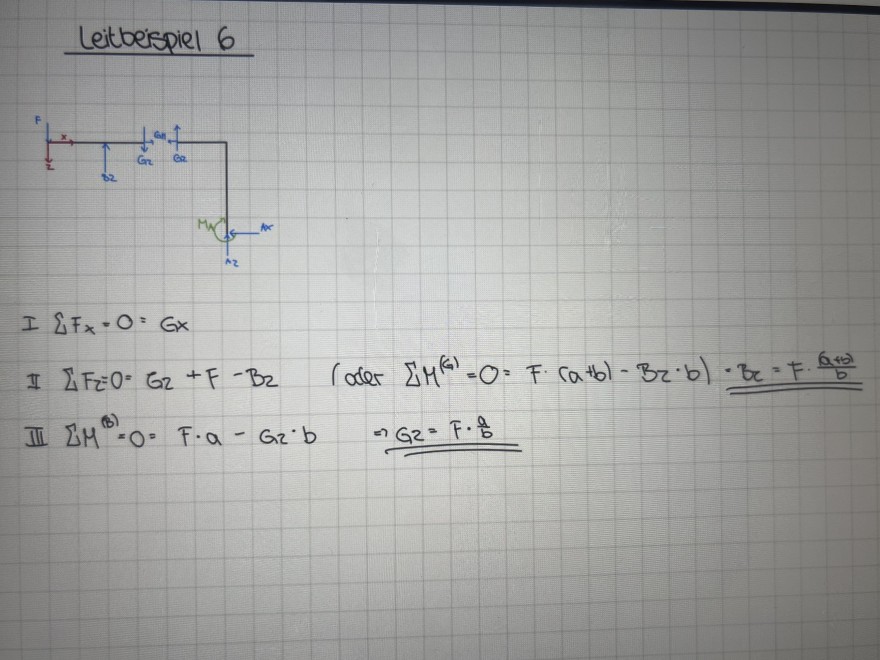 Leitbeispiel 6
F
x
z
Bz
Gz
Gx
Gz
M
Ax
Az
I ΣFx = 0 = Gx
II ΣFz = 0 = Gz + F - Bz (oder ΣM^(G) = 0 = F · (a+b) - Bz · b) · Bz = F · (a+b)/b
III ΣM^(B) = 0 = F · a - Gz · b => Gz = F · a/b